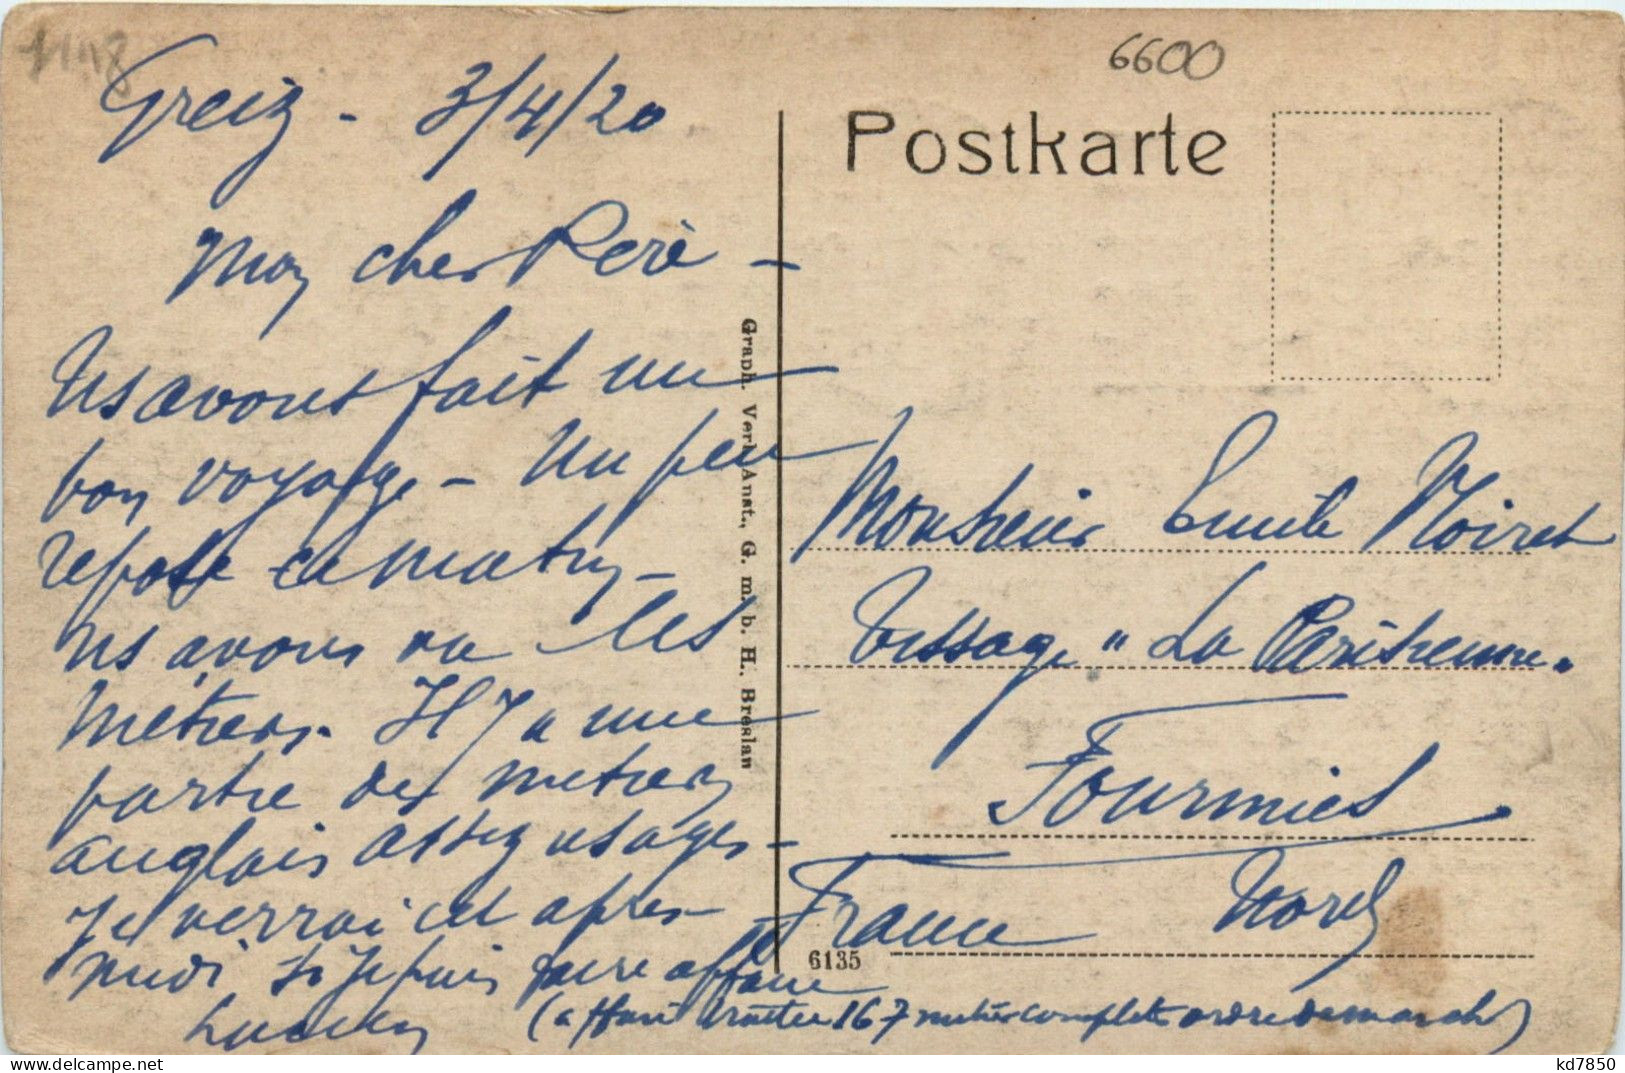 6600
Greiz - 3/4/20
Mon cher Père -
Ns avons fait un
bon voyage - Un peu
repose ce matin -
ns avons vu les
métiers. Il y a une
partie des métiers
anglais assez usagés -
Je verrai cet après
midi si je puis faire affaire
Lucien
Postkarte
Monsieur Emile Noiret
Tissage "La Parisienne"
Fourmies
France Nord
(affaire 167 métiers complets ordre de marche)
Graph. Verl. Anst., G. m. b. H., Breslau
6135
kd7850